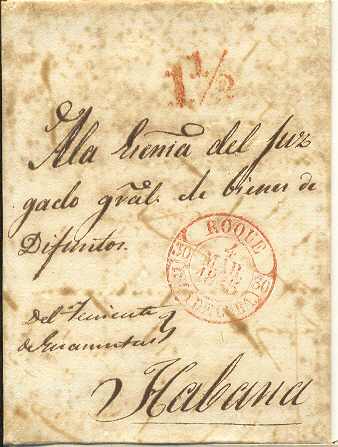 1 1/2
A la Escnia del juz
gado gral. de bienes de
Difuntos.
ROQUE
4
MAR
30 30
ISLA DE CUBA
Del Teniente
de Guamutas
Habana